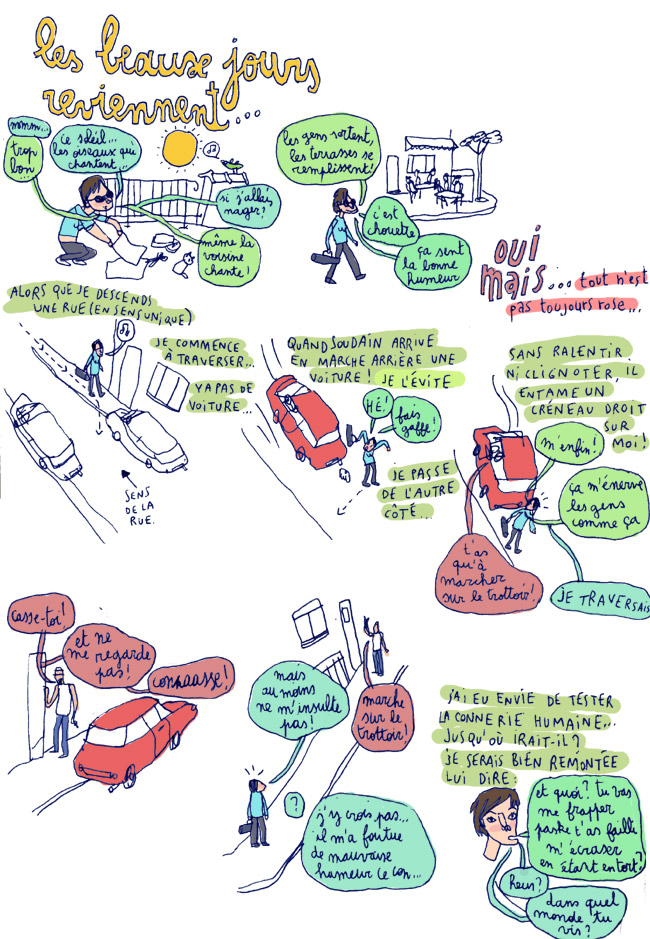 les beaux jours
reviennent...
mmm...
trop
bon
le soleil...
les oiseaux qui
chantent...
si j'allais
nager?
même la
voisine
chante!
les gens sortent,
les terrasses se
remplissent!
c'est
chouette
ça sent
la bonne
humeur
oui
mais... tout n'est
pas toujours rose...
ALORS QUE JE DESCENDS
UNE RUE (EN SENS UNIQUE)
JE COMMENCE
À TRAVERSER...
Y A PAS DE
VOITURE...
SENS
DE LA
RUE.
QUAND SOUDAIN ARRIVE
EN MARCHE ARRIÈRE UNE
VOITURE! JE L'ÉVITE
HÉ!
fais
gaffe!
JE PASSE
DE L'AUTRE
CÔTÉ...
SANS RALENTIR
NI CLIGNOTER, IL
ENTAME UN
CRÉNEAU DROIT
SUR
MOI!
m'enfin!
ça m'énerve
les gens
comme ça
t'as
qu'à
marcher
sur le trottoir!
JE TRAVERSAIS
casse-toi!
et ne
me regarde
pas!
connaasse!
mais
au moins
ne m'insulte
pas!
marche
sur le
trottoir!
?
j'y crois pas...
il m'a foutue
de mauvaise
humeur ce con...
J'AI EU ENVIE DE TESTER
LA CONNERIE HUMAINE...
JUSQU'OÙ IRAIT-IL?
JE SERAIS BIEN REMONTÉE
LUI DIRE:
et quoi? tu vas
me frapper
parske t'as failli
m'écraser
en étant en tort?
Hein?
dans quel
monde tu
vis?